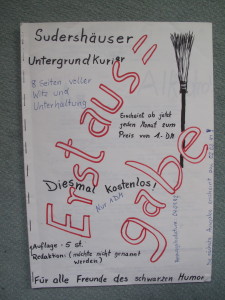 Sudershäuser
Untergrundkurier
8 Seiten voller
Witz und
Unterhaltung
Erstaus=
gabe
Erscheint ab jetzt
jeden Monat zum
Preis von 1.-DM
Diesmal Kostenlos!
Nur 1DM
Auflage - 5 st.
Redaktion: (möchte nicht genannt
werden)
Für alle Freunde des schwarzen Humor